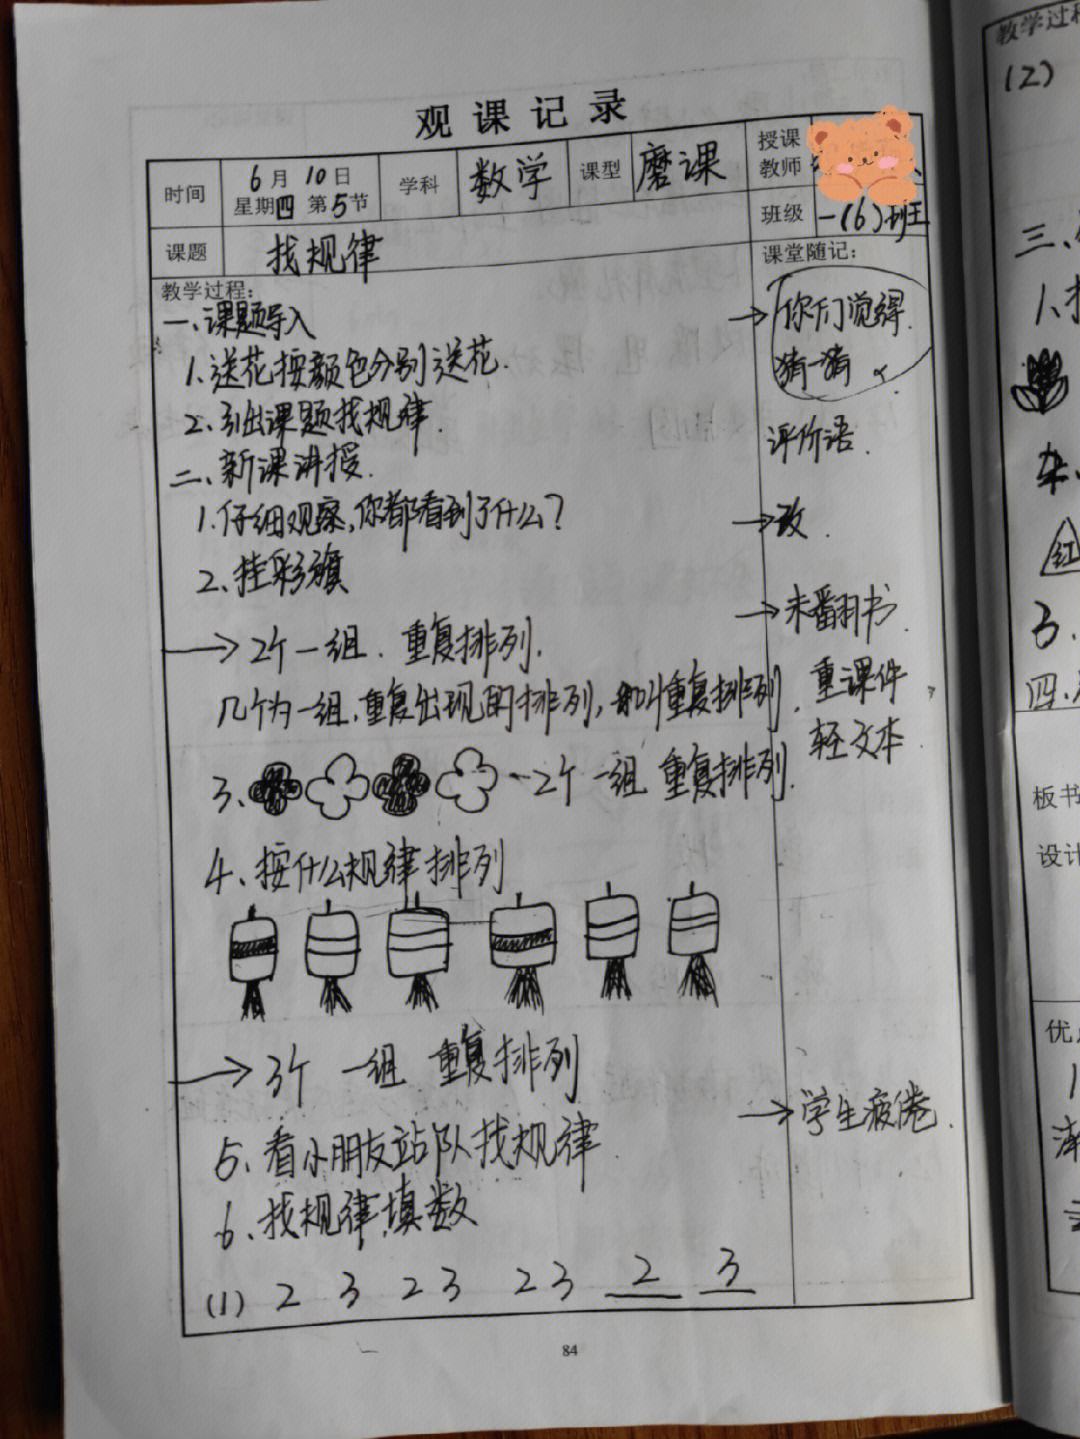 观课记录
时间 6月10日 星期四 第5节 学科 数学 课型 磨课 授课教师
班级 一(6)班
课题 找规律
课堂随记:
教学过程:
一、课题导入
1.送花按颜色分别送花.
2.引出课题找规律.
二、新课讲授.
1.仔细观察,你都看到了什么?
2、挂彩旗
→2个一组.重复排列.
几个为一组,重复出现的排列,叫重复排列.
3、 2个一组 重复排列.
4、按什么规律排列
→3个 一组 重复排列
5、看小朋友站队找规律
6、找规律,填数
(1) 2 3 2 3 2 3 2 3
→你们觉得.
猜一猜
评价语.
→改.
→未翻书.
重课件
轻文本
→学生疲倦.
84
教学过程
(2)
三、
1、
红
3.
四、
板书
设计
优
1